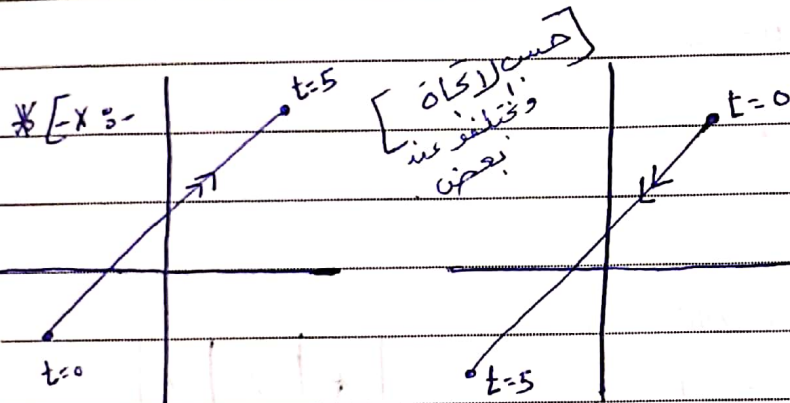 * [-x :-
t=5
t=0
[حسب الاتجاه
وتختلفو عند
بعض]
t=0
t=5